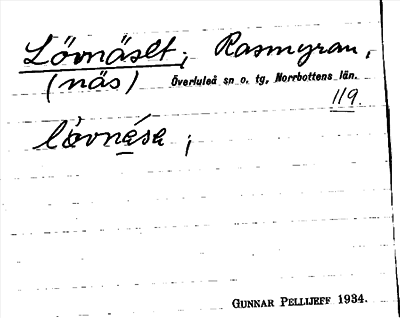 Lövnäset; Rasmyran,
(näs) Överluleå sn o. tg, Norrbottens län.
119
lövnése ;
GUNNAR PELLIJEFF 1934.